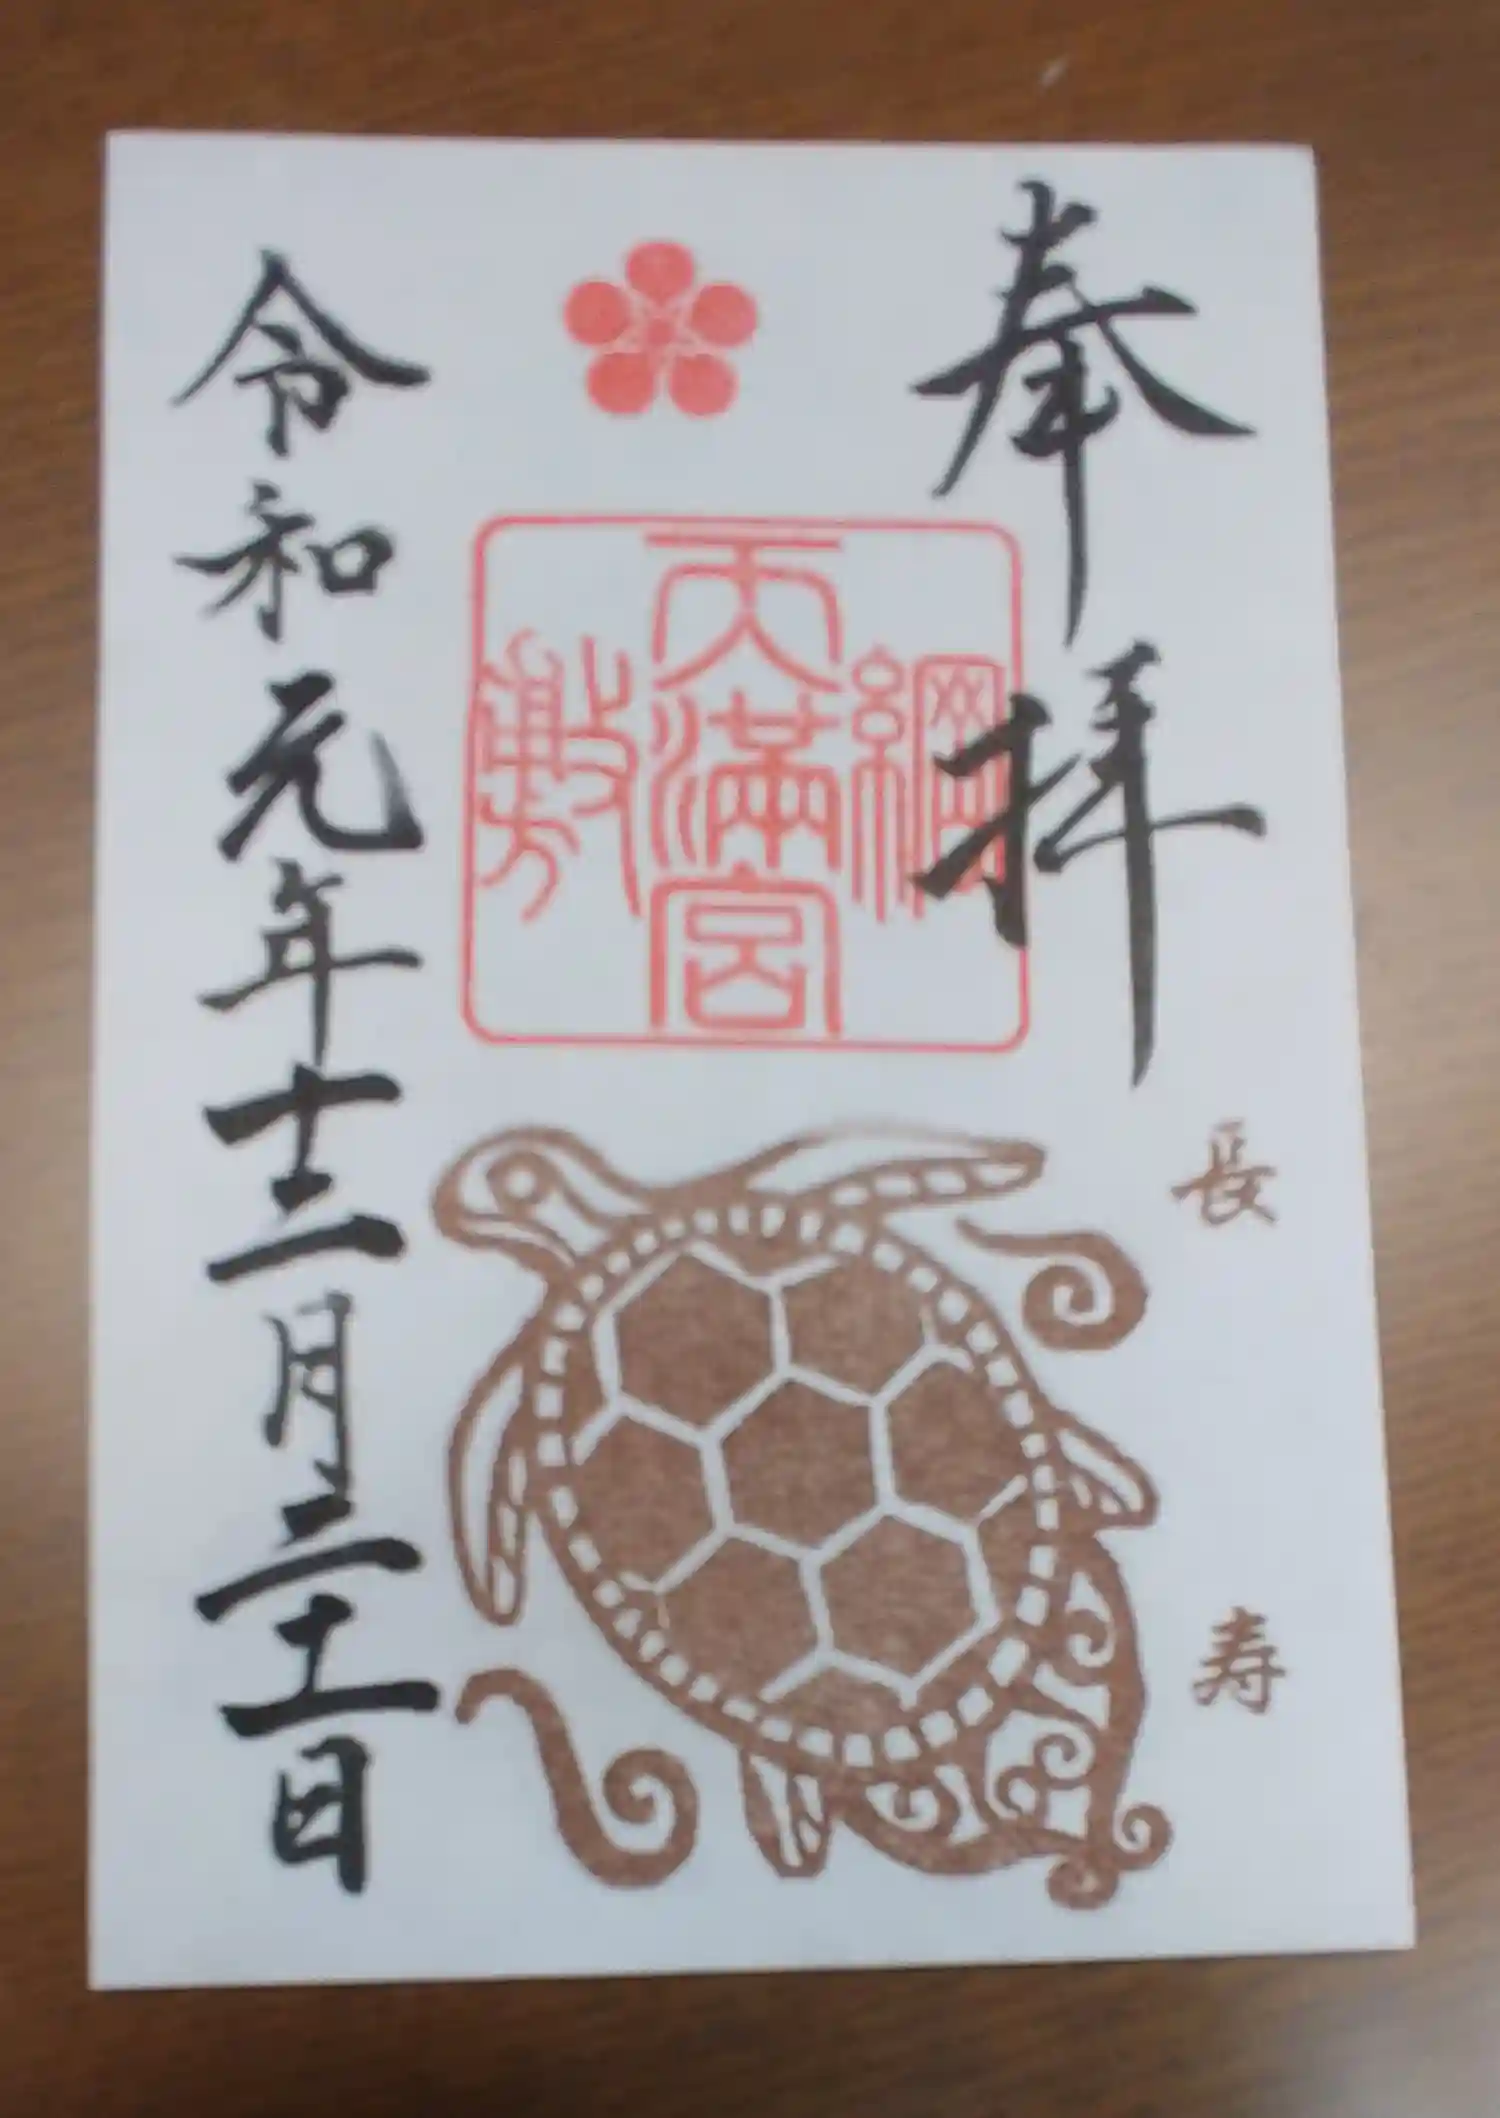 奉拝
長寿
綱敷
天満宮
令和元年十二月二十一日